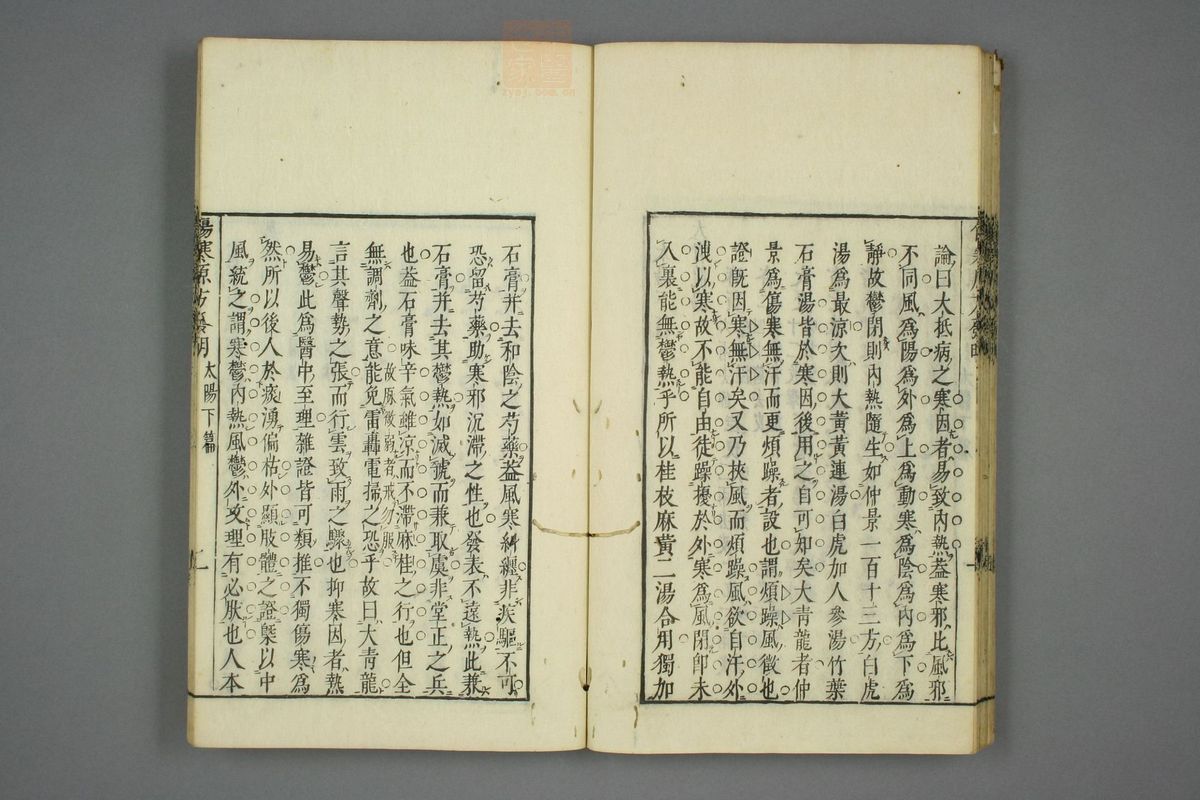 論曰大抵病之寒因者易致內熱葢寒邪比風邪
不同風爲陽爲外爲上爲動寒爲陰爲內爲下爲
靜故鬱閉則內熱隨生如仲景一百十三方白虎
湯爲最涼次則大黃黃連湯白虎加人參湯竹葉
石膏湯皆於寒因後用之自可知矣大青龍者仲
景爲傷寒無汗而更煩躁者設也謂煩躁風徵也
證旣因寒無汗矣又乃挾風而煩躁風欲自汗外
洩以寒故不能自由徒躁擾於外寒爲風閉卽未
入裏能無鬱熱乎所以桂枝麻黃二湯合用獨加
石膏幷去和陰之芍藥葢風寒糾纏非疾驅不可
恐留芍藥助寒邪沉滯之性也發表不遠熱此兼
石膏幷去其鬱熱如滅虢而兼取虞非堂正之兵
也葢石膏味辛氣雖涼而不滯麻桂之行也但全
無調劑之意能免雷轟電掃之恐乎故曰大青龍
故脈微弱者戒勿服
言其聲勢之張而行雲致雨之驟也抑寒因者熱
易鬱此爲醫中至理雜證皆可類推不獨傷寒爲
然所以後人於痰湧偏枯外顯肢體之證槩以中
風統之謂寒鬱內熱風鬱外文理有必肰也人本
傷寒原方發明
太陽下篇
zysj.com.cn